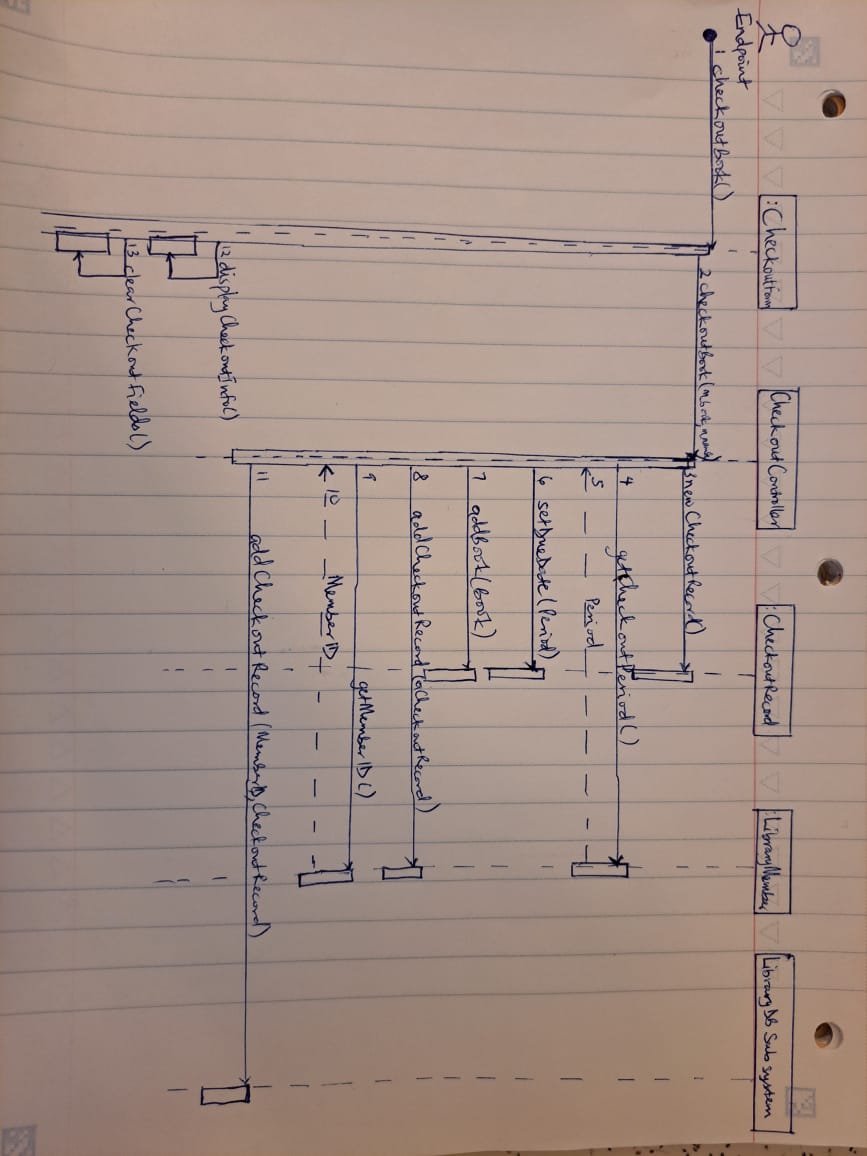 Endpoint
:CheckoutForm
CheckoutController
:CheckoutRecord
:LibraryMember
LibraryDB Sub system
1 checkoutBook()
2 checkoutBook(
3 newCheckoutRecord()
4 getCheckoutPeriod()
5 Period
6 setDueDate(Period)
7 addBook(book)
8 addCheckoutRecord(aCheckoutRecord)
9 getMemberID()
10 MemberID
11 addCheckoutRecord(MemberID, CheckoutRecord)
12 displayCheckoutInfo()
13 clearCheckoutFields()